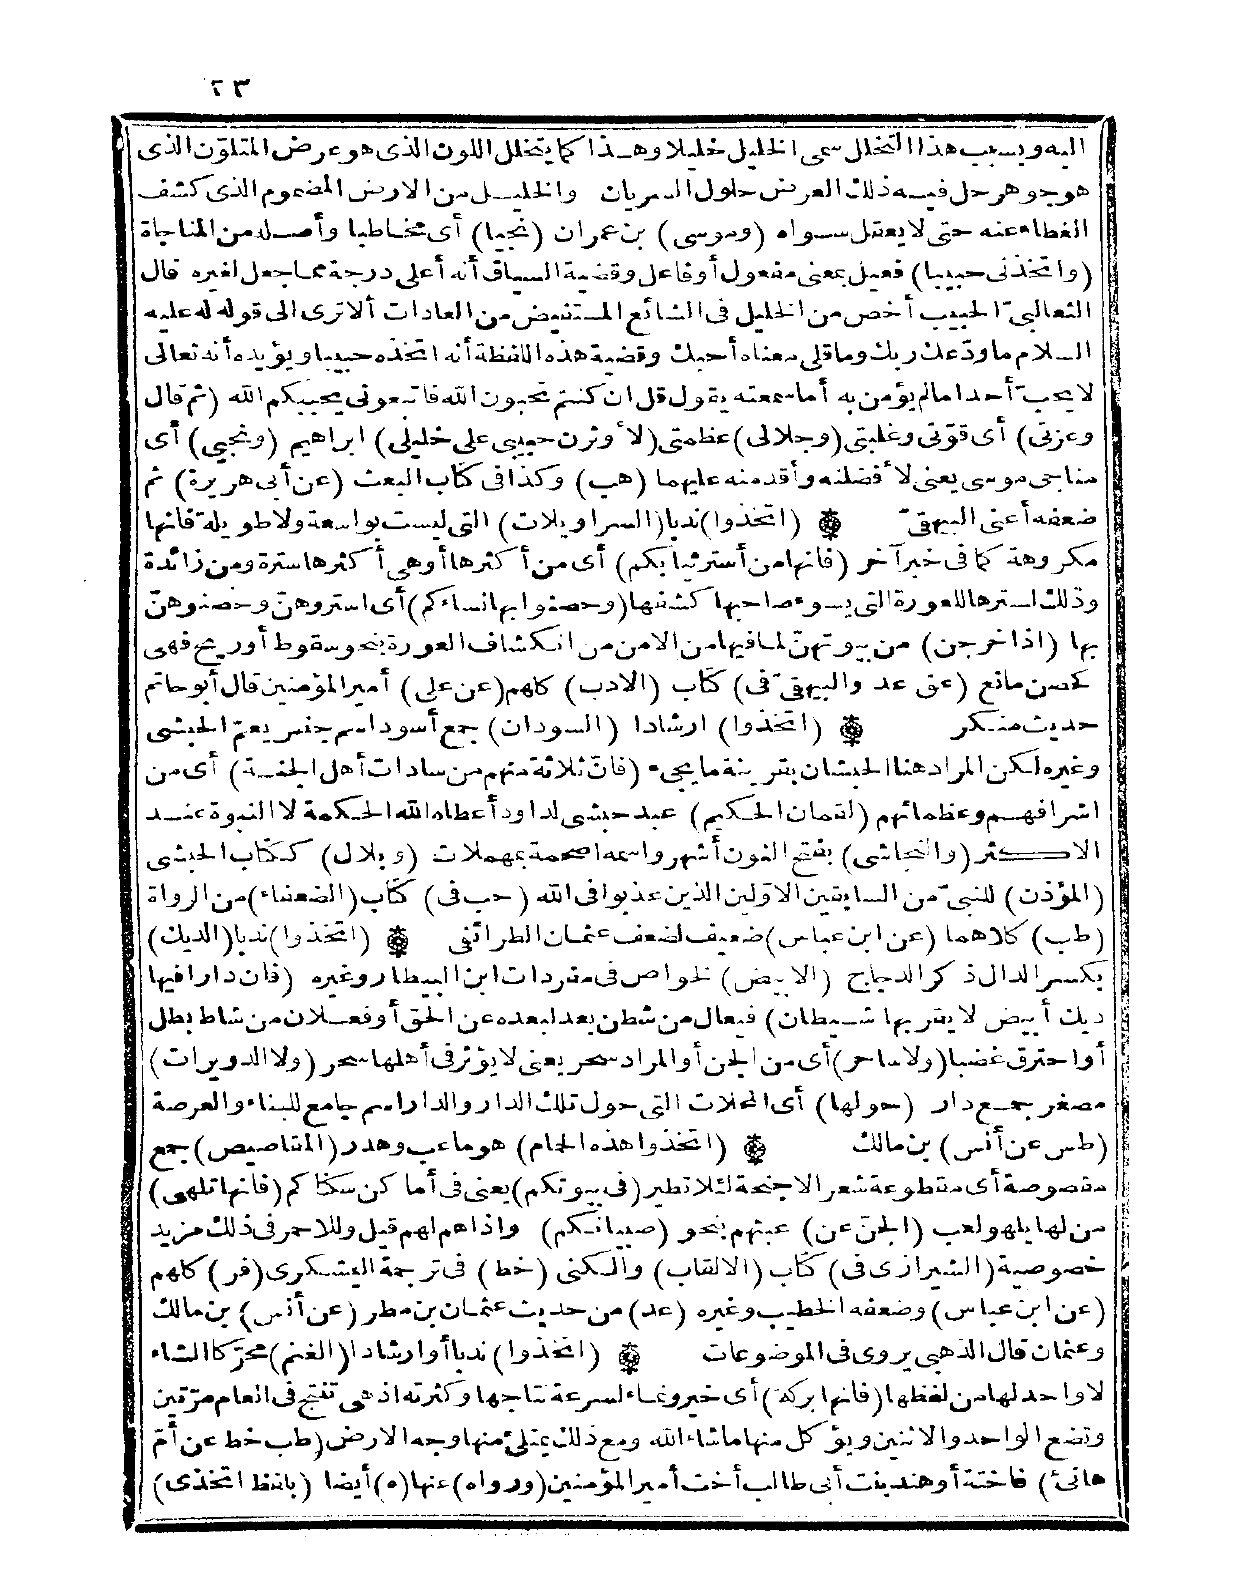 ٢٣
اليه وبسبب هذا التخلل سمى الخليل خليلا وهـذا كما يتخلل اللون الذى هو عرض المتلون الذى
هو جوهر حل فيـه ذلك العرض حلول السريان والخليـل من الارض المضموم الذى كشف
الغطاء عنه حتى لا يعقل سـواه (وموسى) بن عمران (نجيا) أى مخاطبا وأصـله من المناجاة
(واتخذنى حبيبا) فعيل بمعنى مفعول أو فاعل وقضية السياق أنه أعلى درجة مما جعل لغيره قال
الثعالبىّ الحبيب أخص من الخليل فى الشائع المستفيض من العادات ألا ترى الى قوله له عليه
السلام ما ودّعك ربك وما قلى معناه أحبك وقضية هذه اللفظة أنه اتخذه حبيبا ويؤيده أنه تعالى
لا يحبّ أحدا ما لم يؤمن به أما سمعته يقول قل ان كنتم تحبون الله فاتبعونى يحببكم الله (ثم قال
وعزتى) أى قوّتى وغلبتى (وجلالى) عظمتى (لأوثرن حبيبى على خليلى) ابراهيم (ونجيى) أى
مناجى موسى يعنى لأفضلنه وأقدمنه عليهما (هب) وكذا فى كتاب البعث (عن أبى هريرة) ثم
ضعفه أعنى البيهقىّ (اتخذوا) ندبا (السراويلات) التى ليست بواسعة ولا طويلة فانها
مكروهة كما فى خبر آخر (فانها من أستر ثيابكم) أى من أكثرها أو هى أكثرها سترة ومن زائدة
وذلك لسترها للعورة التى يسوء صاحبها كشفها (وحصنوا بها نساءكم) أى استروهنّ وحصنوهنّ
بها (اذا خرجن) من بيوتهنّ لما فيها من الامن من انكشاف العورة بنحو سقوط أو ريح فهى
كحصن مانع (عق عد والبيهقىّ فى) كتاب (الادب) كلهم (عن على) أمير المؤمنين قال أبو حاتم
حديث منـكر (اتخذوا) ارشادا (السودان) جمع أسود اسم جنس يعم الحبشى
وغيره لكن المراد هنا الحبشان بقرينة ما يجىء (فانّ ثلاثة منهم من سادات أهل الجنـة) أى من
اشرافهـم وعظمائهم (لقمان الحكيم) عبد حبشى لداود أعطاه الله الحكمة لا النبوة عنـد
الاكثر (والنجاشى) بفتح النون أشهر واسمه اصحمة بمهملات (وبلال) ككتاب الحبشى
(المؤذن) للنبىّ من السابقين الاوّلين الذين عذبوا فى الله (حب فى) كتاب (الضعفاء) من الرواة
(طب) كلاهما (عن ابن عباس) ضعيف لضعف عثمان الطرائفى (اتخذوا) ندبا (الديك)
بكسر الدال ذكر الدجاج (الابيض) لخواص فى مفردات ابن البيطار وغيره (فان دارا فيها
ديك أبيض لا يقربها شـيطان) فيعال من شطن بعد لبعده عن الحق أو فعـلان من شاط بطل
أو احترق غضبا (ولا ساحر) أى من الجن أو المراد سحر يعنى لا يؤثر فى أهلها سحر (ولا الدويرات)
مصغر بجمـع دار (حولها) أى المحلات التى حول تلك الدار والدار اسم جامع للبناء والعرصة
(طس عن أنس) بن مالك (اتخذوا هذه الحمام) هو ما عب وهدر (المقاصيص) جمع
مقصوصة أى مقطوعة شعر الاجنحة لئلا تطير (فى بيوتكم) يعنى فى أماكن سكناكم (فانها تلهى)
من لها يلهو لعب (الجن عن) عبثهم بنحو (صبيانكم) واذاهم لهم قيل وللاحمر فى ذلك مزيد
خصوصية (الشيرازى فى) كتاب (الالقاب) والكنى (خط) فى ترجمة اليشكرى (فر) كلهم
(عن ابن عباس) وضعفه الخطيب وغيره (عد) من حديث عثمان بن مطر (عن أنس) بن مالك
وعثمان قال الذهبى يروى فى الموضوعات (اتخذوا) ندبا أو ارشادا (الغنم) محرّكا الشاء
لا واحد لها من لفظها (فانها بركة) أى خير ونماء لسرعة نتاجها وكثرته اذ هى تنتج فى العام مرّتين
وتضع الواحد والاثنين ويؤكل منها ما شاء الله ومع ذلك يمتلئ منها وجه الارض (طب خط عن أمّ
هانئ) فاختة أو هند بنت أبى طالب أخت أمير المؤمنين (ورواه) عنها (ه) أيضا (بلفظ اتخذى)